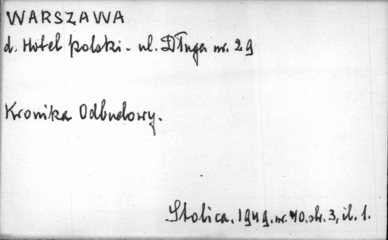 WARSZAWA
d. Hotel polski - ul. Długa nr. 29
Kronika Odbudowy.
Stolica. 1949. nr. 40. str. 3, il. 1.